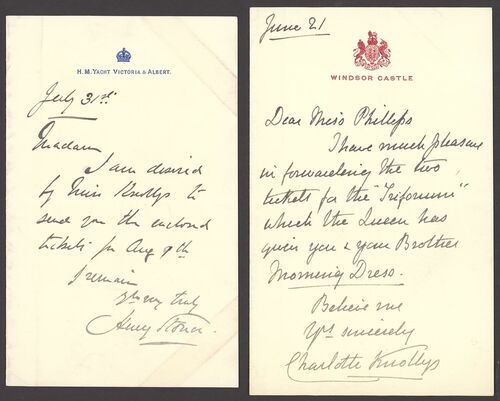 H. M. YACHT VICTORIA & ALBERT.
July 31st
Madam
I am desired
by Miss Knollys to
send you the enclosed
tickets for Aug 9th
I remain
Yrs very truly
Henry Stonor.
June 21
WINDSOR CASTLE
Dear Miss Phillips
I have much pleasure
in forwarding the two
tickets for the "Triforium"
which the Queen has
given you & your Brother
Morning Dress.
Believe me
Yrs sincerely
Charlotte Knollys